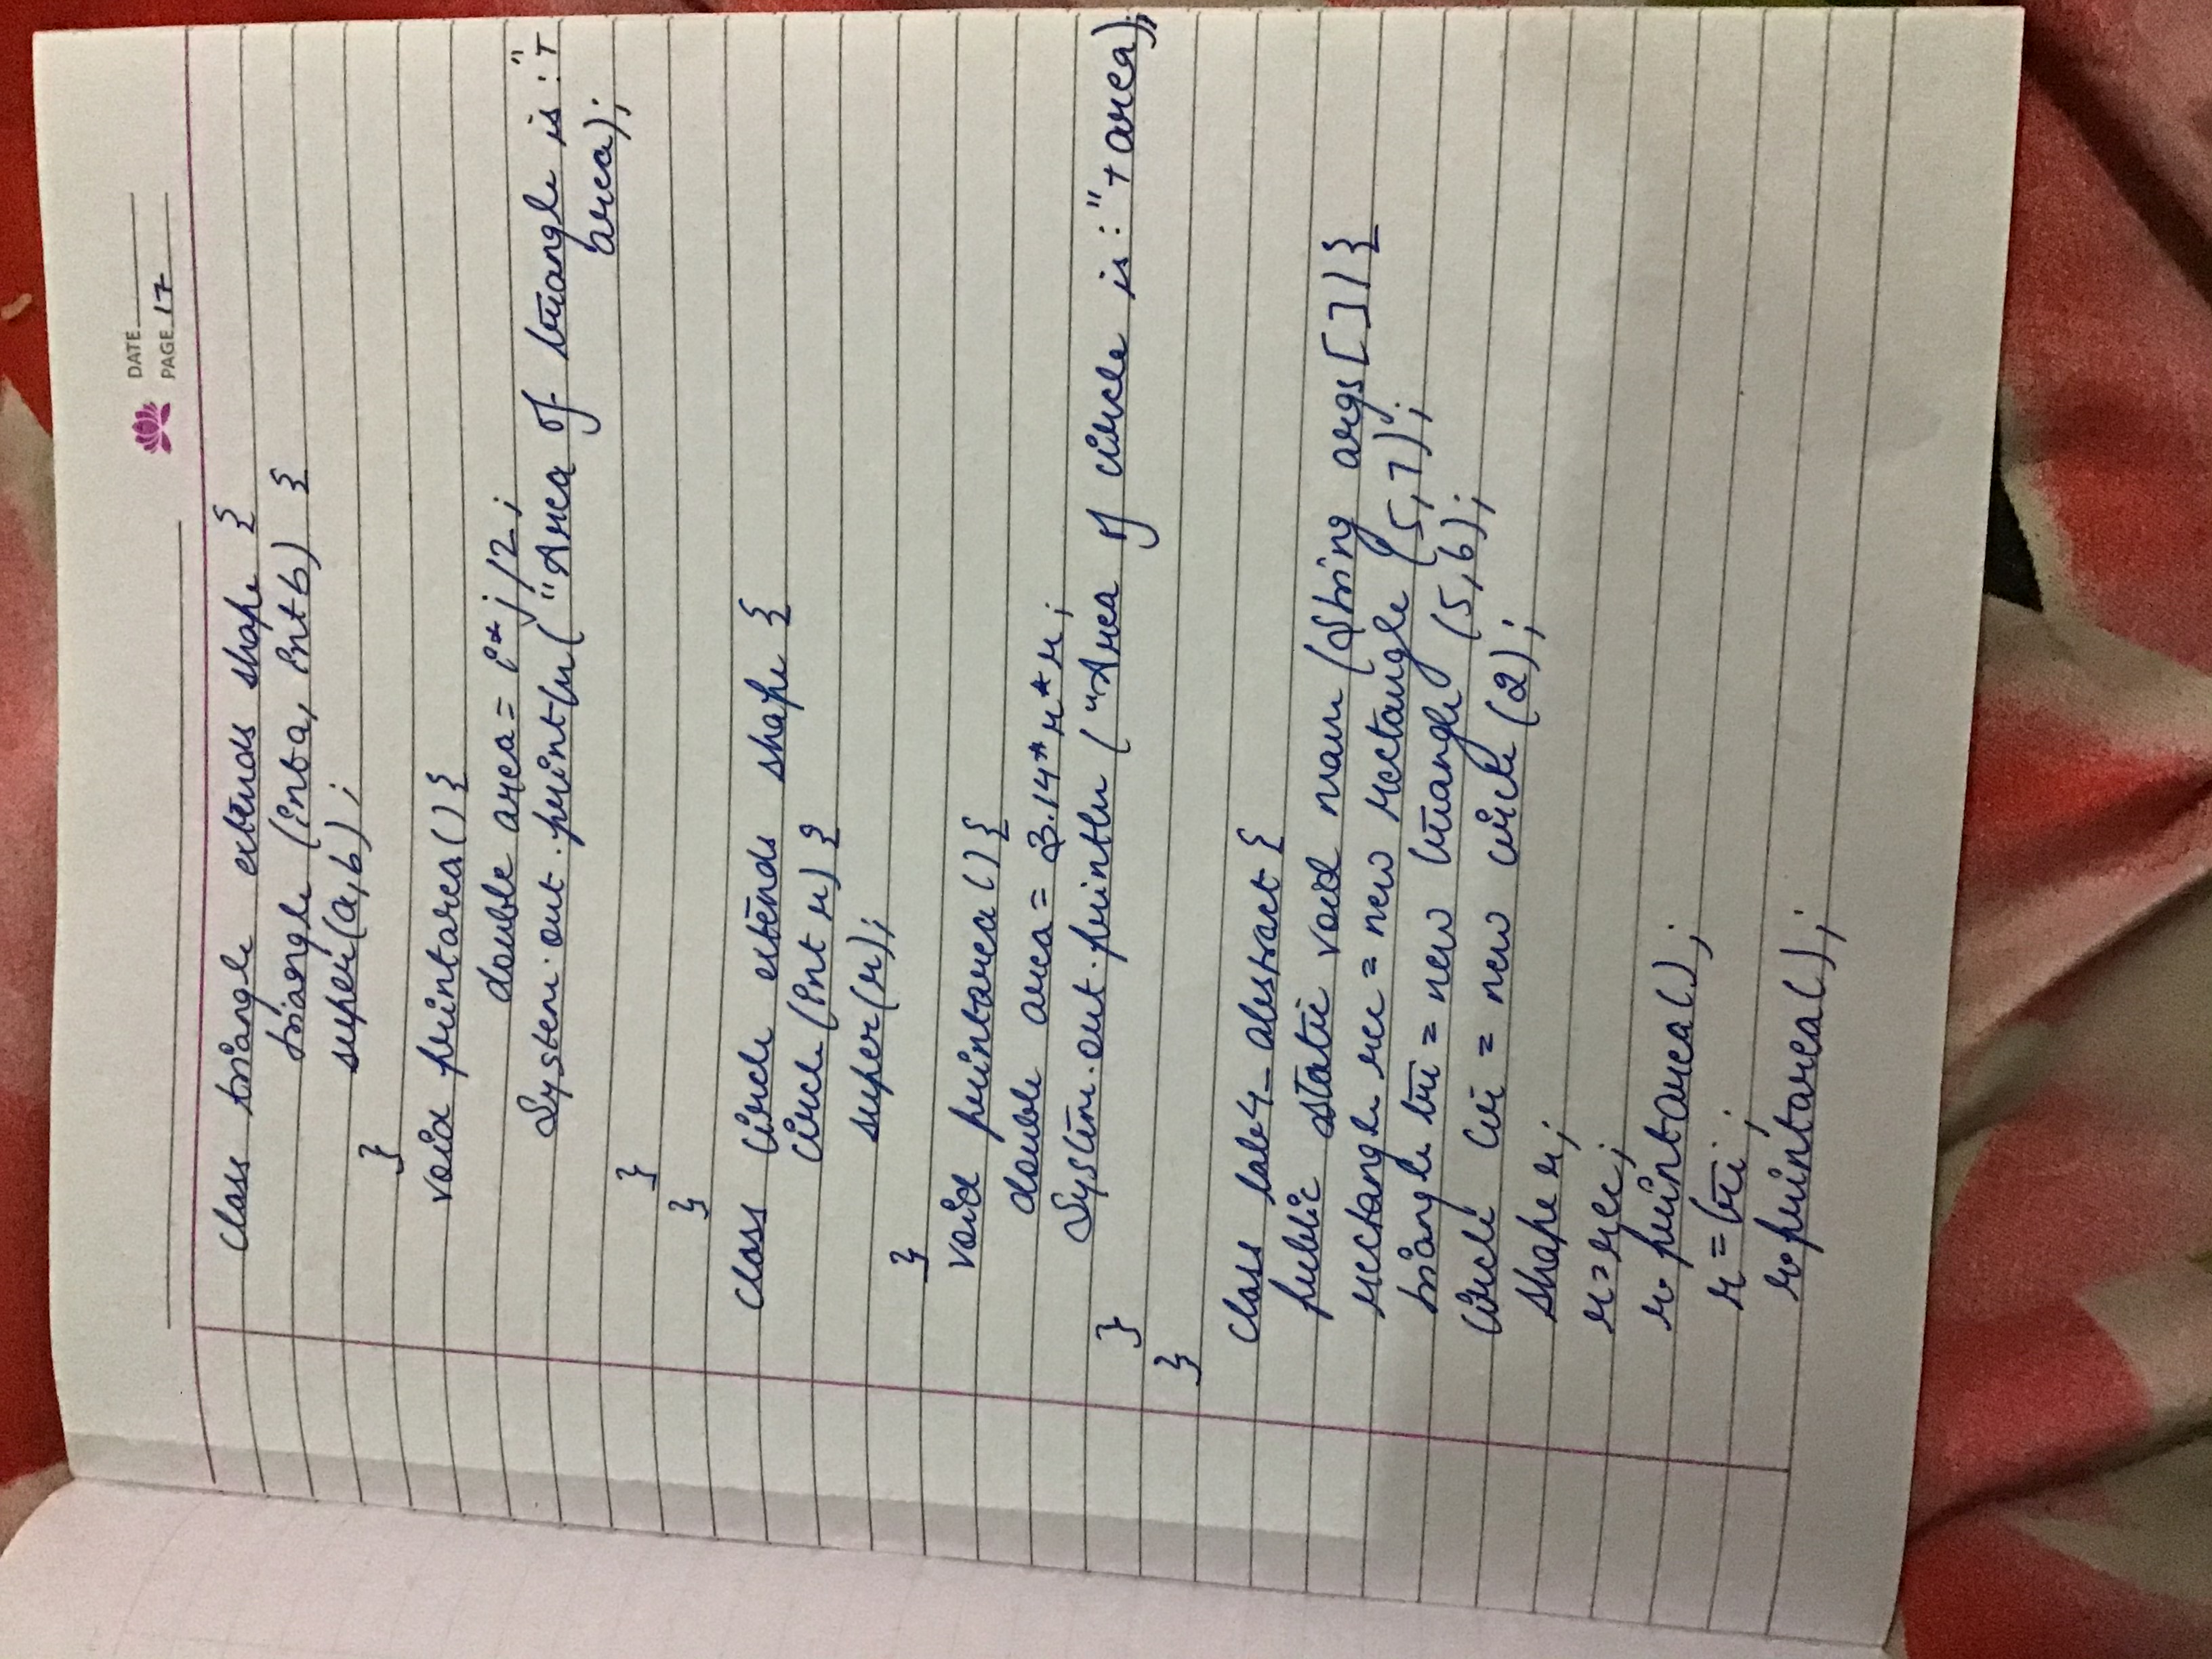 DATE
PAGE 17
class triangle extends shape {
triangle (int a, int b) {
super(a,b);
}
void printarea(){
double area = i*j/2;
System.out.println("Area of triangle is:"+
area);
}
}
class circle extends shape {
circle(int r) {
super(r);
}
void printarea(){
double area = 3.14*r*r;
System.out.println("Area of circle is:"+area);
}
}
class lab4_abstract{
public static void main (String args[]){
rectangle rec = new rectangle (5,7);
triangle tri = new triangle (5,6);
circle cir = new circle (2);
shape r;
r=rec;
r.printarea();
r=tri;
r.printarea();